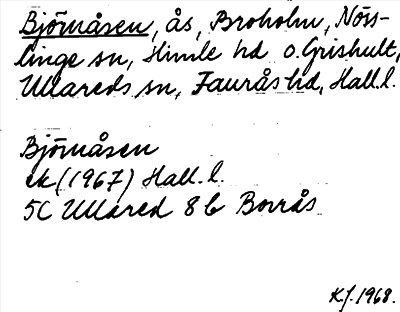 Björnåsen, ås, Broholm, Nöss-
linge sn, Himle hd o. Grishult,
Ullareds sn, Faurås hd, Hall. l.
Björnåsen
ek (1967) Hall. l.
5C Ullared 8 b Borrås
K.J. 1968.